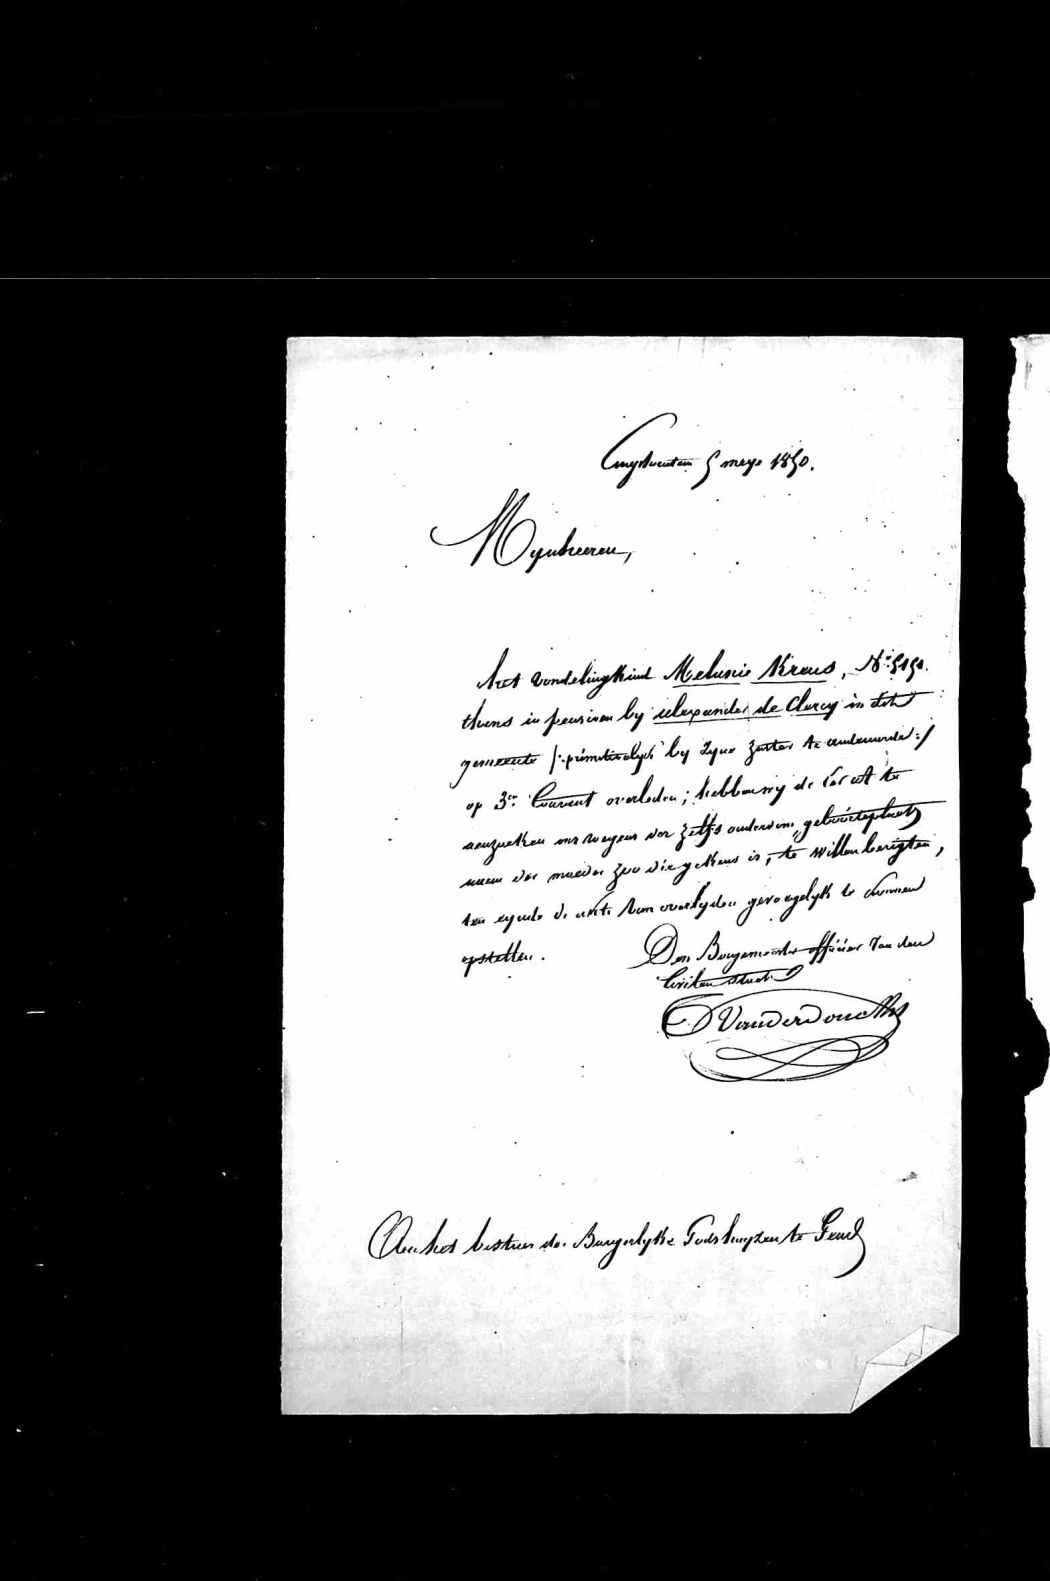 Cruyshautem 5 meye 1850.
Mynheeren,
Het vondelingkind Melanie Kraus, N° 5150.
thans in pension by Alexander de Clercq in deze
gemeente /: primitivelyk by zyne zuster te :/
op 3en Courant overleden; hebbe ik de eer UE te
aenzoeken my wegens der zelfs ouderdom, geboorteplaats
naem der moeder zoo die gekens is, te willen berigten,
ten eynde de akte van overlyden gevoegelyk te kunnen
opstellen.
Den Burgemeester officier van den
Civilen staet
VanderDonckt
Aen het bestuer der Burgerlyke Godshuyzen te Gend